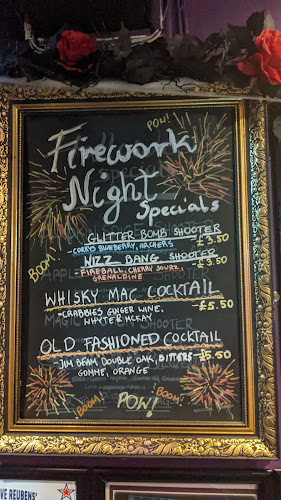 POW!
Firework
Night
Specials
GLITTER BOMB SHOOTER
-CORKYS BLUEBERRY, ARCHERS -£3.50
WIZZ BANG SHOOTER
-FIREBALL, CHERRY SOURZ, -£3.50
GRENADINE
BOOM!
WHISKY MAC COCKTAIL
-CRABBIES GINGER WINE, -£5.50
WHYTE & MCKAY
OLD FASHIONED COCKTAIL
-JIM BEAM DOUBLE OAK, BITTERS -£5.50
GOMME, ORANGE
BOOM! POW! BOOM!
VE REUBENS'